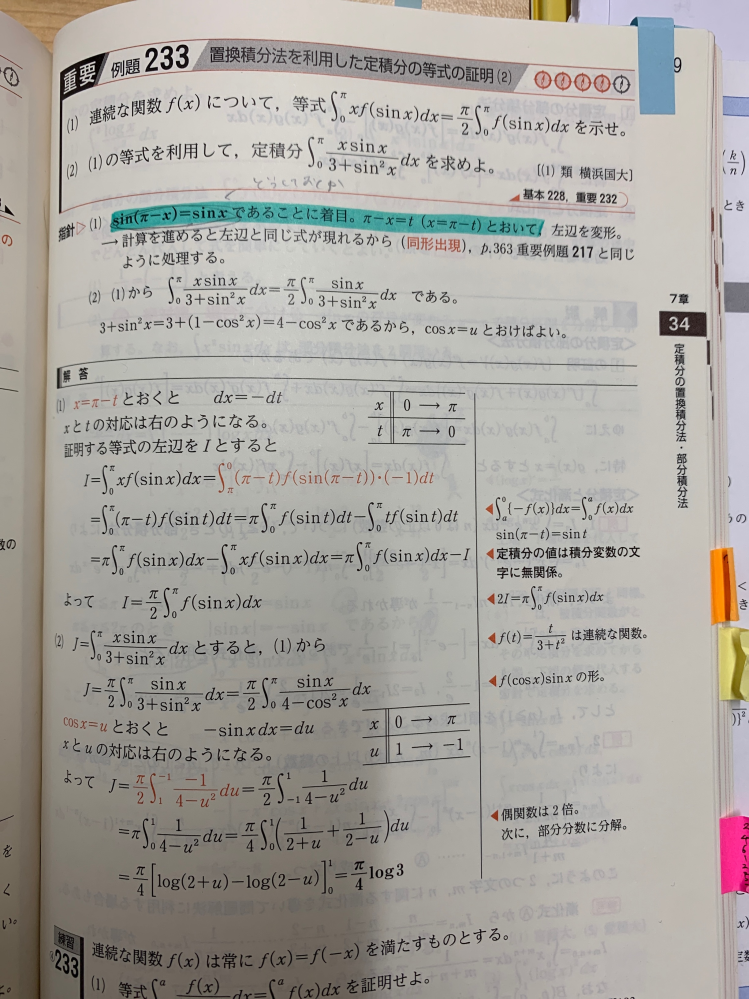 重要 例題 233 置換積分法を利用した定積分の等式の証明 (2)
9
(1) 連続な関数 f(x) について，等式 ∫₀^π xf(sin x)dx = π/2 ∫₀^π f(sin x)dx を示せ。
(2) (1)の等式を利用して，定積分 ∫₀^π (x sin x)/(3+sin²x) dx を求めよ。
[(1) 類 横浜国大]
基本 228，重要 232
指針 ▷ (1) sin(π−x)=sin x であることに着目。π−x=t (x=π−t) とおいて，左辺を変形。
→ 計算を進めると左辺と同じ式が現れるから (同形出現)，p.363 重要例題 217 と同じ
ように処理する。
(2) (1)から ∫₀^π (x sin x)/(3+sin²x) dx = π/2 ∫₀^π (sin x)/(3+sin²x) dx である。
3+sin²x=3+(1−cos²x)=4−cos²x であるから，cos x=u とおけばよい。
7章
34
定積分の置換積分法・部分積分法
解答
(1) x=π−t とおくと dx=−dt
x と t の対応は右のようになる。
x 0 → π
t π → 0
証明する等式の左辺を I とすると
I=∫₀^π xf(sin x)dx=∫_π^0 (π−t)f(sin(π−t))・(−1)dt
=∫₀^π (π−t)f(sin t)dt=π∫₀^π f(sin t)dt−∫₀^π tf(sin t)dt
◀ ∫_a^0 {−f(x)}dx=∫₀^a f(x)dx
sin(π−t)=sin t
=π∫₀^π f(sin x)dx−∫₀^π xf(sin x)dx=π∫₀^π f(sin x)dx−I
◀ 定積分の値は積分変数の文
字に無関係。
よって I=π/2 ∫₀^π f(sin x)dx
◀ 2I=π∫₀^π f(sin x)dx
(2) J=∫₀^π (x sin x)/(3+sin²x) dx とすると，(1)から
◀ f(t)=t/(3+t²) は連続な関数。
J=π/2 ∫₀^π (sin x)/(3+sin²x) dx=π/2 ∫₀^π (sin x)/(4−cos²x) dx
◀ f(cos x)sin x の形。
cos x=u とおくと −sin x dx=du
x と u の対応は右のようになる。
x 0 → π
u 1 → −1
よって J=π/2 ∫₁^{−1} (−1)/(4−u²) du=π/2 ∫_{−1}^1 1/(4−u²) du
=π∫₀^1 1/(4−u²) du=π/4 ∫₀^1 (1/(2+u)+1/(2−u))du
◀ 偶関数は 2 倍。
次に，部分分数に分解。
=π/4 [log(2+u)−log(2−u)]₀^1=π/4 log 3
練習
233
連続な関数 f(x) は常に f(x)=f(−x) を満たすものとする。
(1) 等式 dx=∫₀^a f(x)dx を証明せよ。